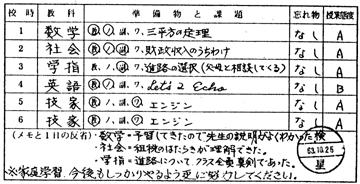 校時 教科 準備物と課題 忘れ物 授業態度
1 数学 教 ノ 副 ワ、三平方の定理 なし A
2 社会 教 ノ 副 ワ、財政収入のうちわけ なし A
3 学指 教 ノ 副 ワ、進路の選択(父母と相談してくる) なし A
4 英語 教 ノ 副 ワ、Let's 2 Echo なし B
5 技家 教 ノ 副 ワ、エンジン なし A
6 技家 教 ノ 副 ワ、エンジン なし A
(メモと1日の反省)・数学=予習してきたので先生の説明がよくわかった 検
・社会=租税のはたらきが理解できた。 63.10.25
・学指=進路について、クラス全員真剣であった。
※家庭学習、今後もしっかりやるよう更に努力してください。